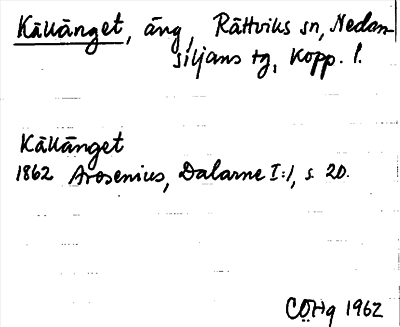 Källänget, äng, Rättviks sn, Nedan-
siljans tg, Kopp. l.
Källänget
1862 Arosenius, Dalarne I:1, s. 20.
CÖHg 1962